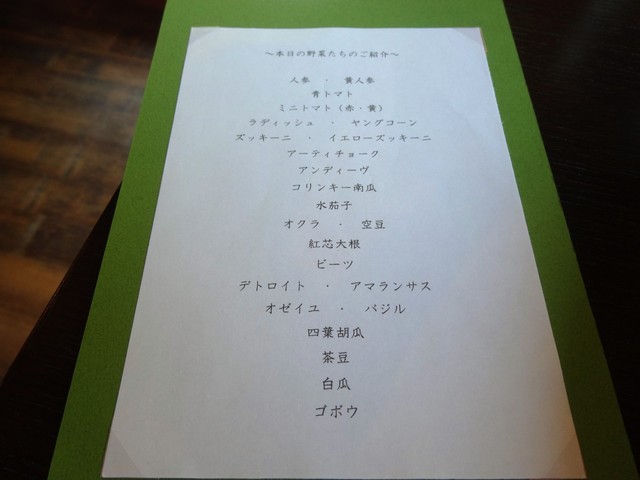 ～本日の野菜たちのご紹介～
人参 ・ 黄人参
青トマト
ミニトマト（赤・黄）
ラディッシュ ・ ヤングコーン
ズッキーニ ・ イエローズッキーニ
アーティチョーク
アンディーヴ
コリンキー南瓜
水茄子
オクラ ・ 空豆
紅芯大根
ビーツ
デトロイト ・ アマランサス
オゼイユ ・ バジル
四葉胡瓜
茶豆
白瓜
ゴボウ